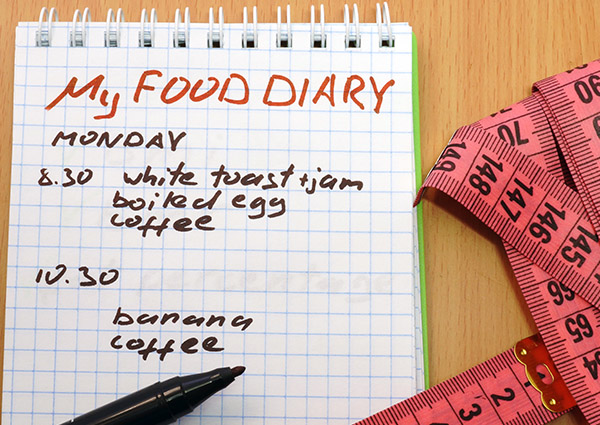 My FOOD DIARY
MONDAY
8.30 white toast+jam
boiled egg
coffee
10.30
banana
coffee
90
70
149
148
147
146
145
64
65
66
2
3